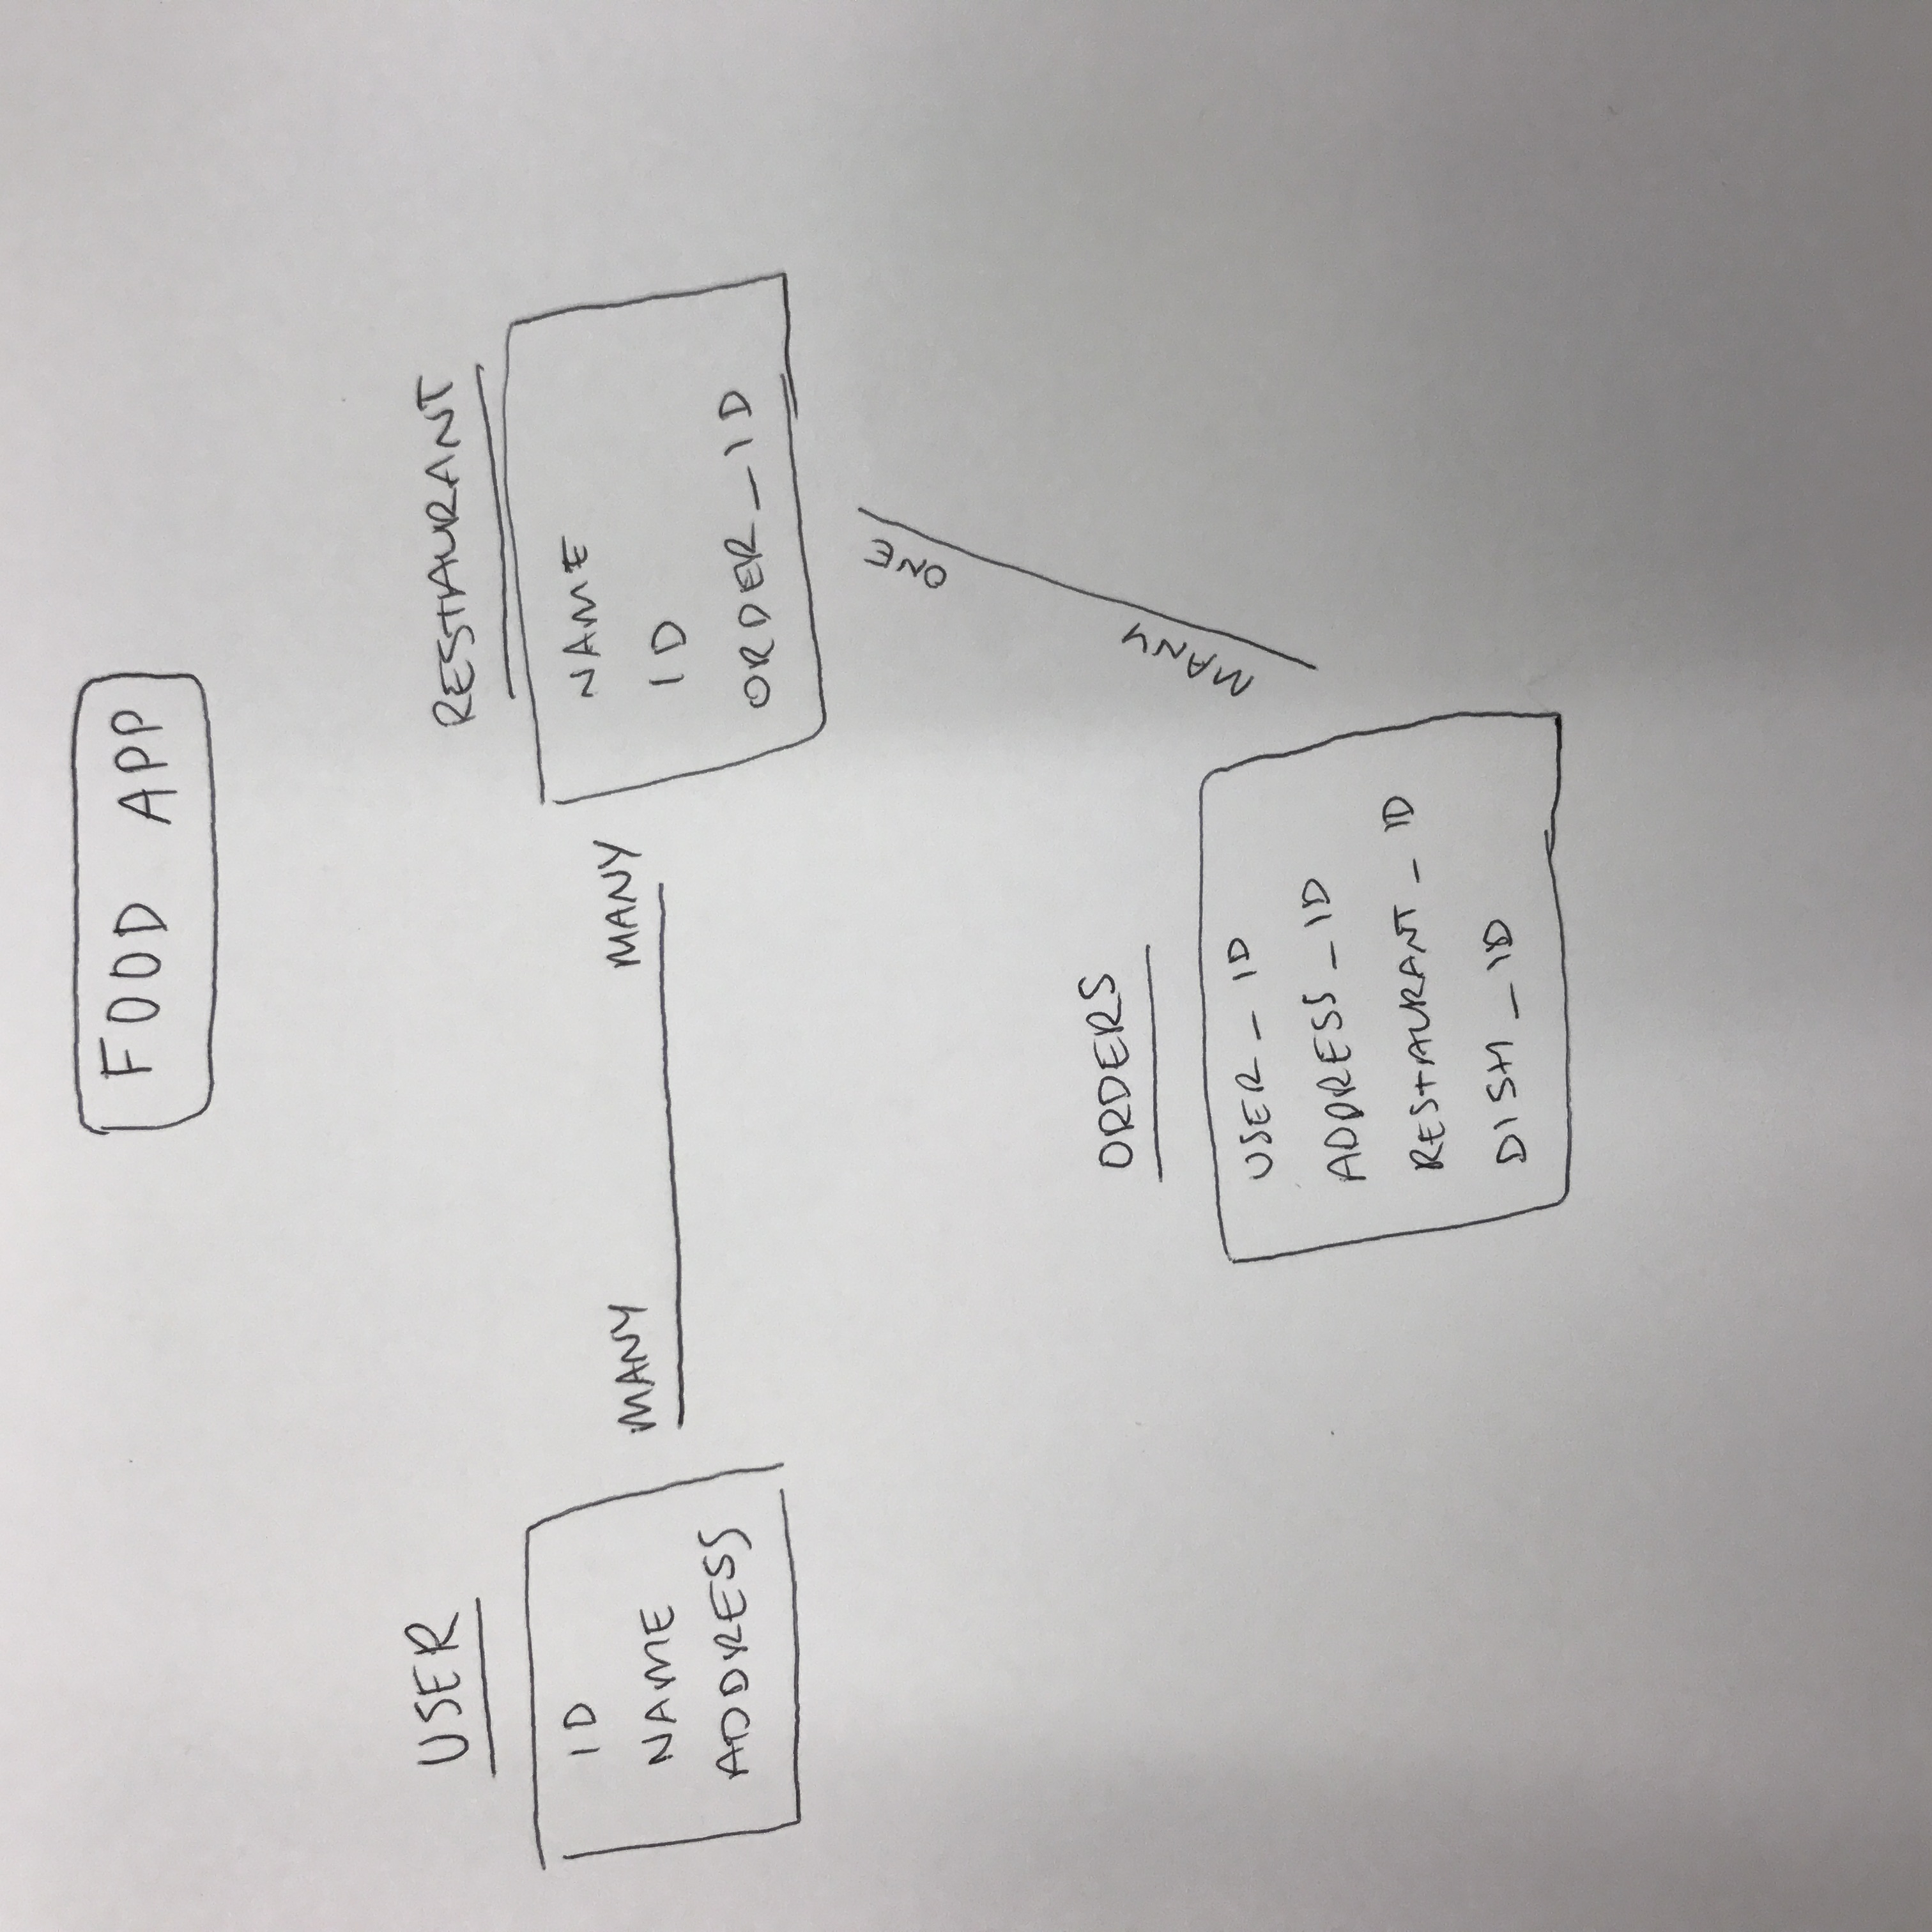 FOOD APP
USER
ID
NAME
ADDRESS
MANY MANY
RESTAURANT
NAME
ID
ORDER_ID
ONE
MANY
ORDERS
USER_ID
ADDRESS_ID
RESTAURANT_ID
DISH_ID